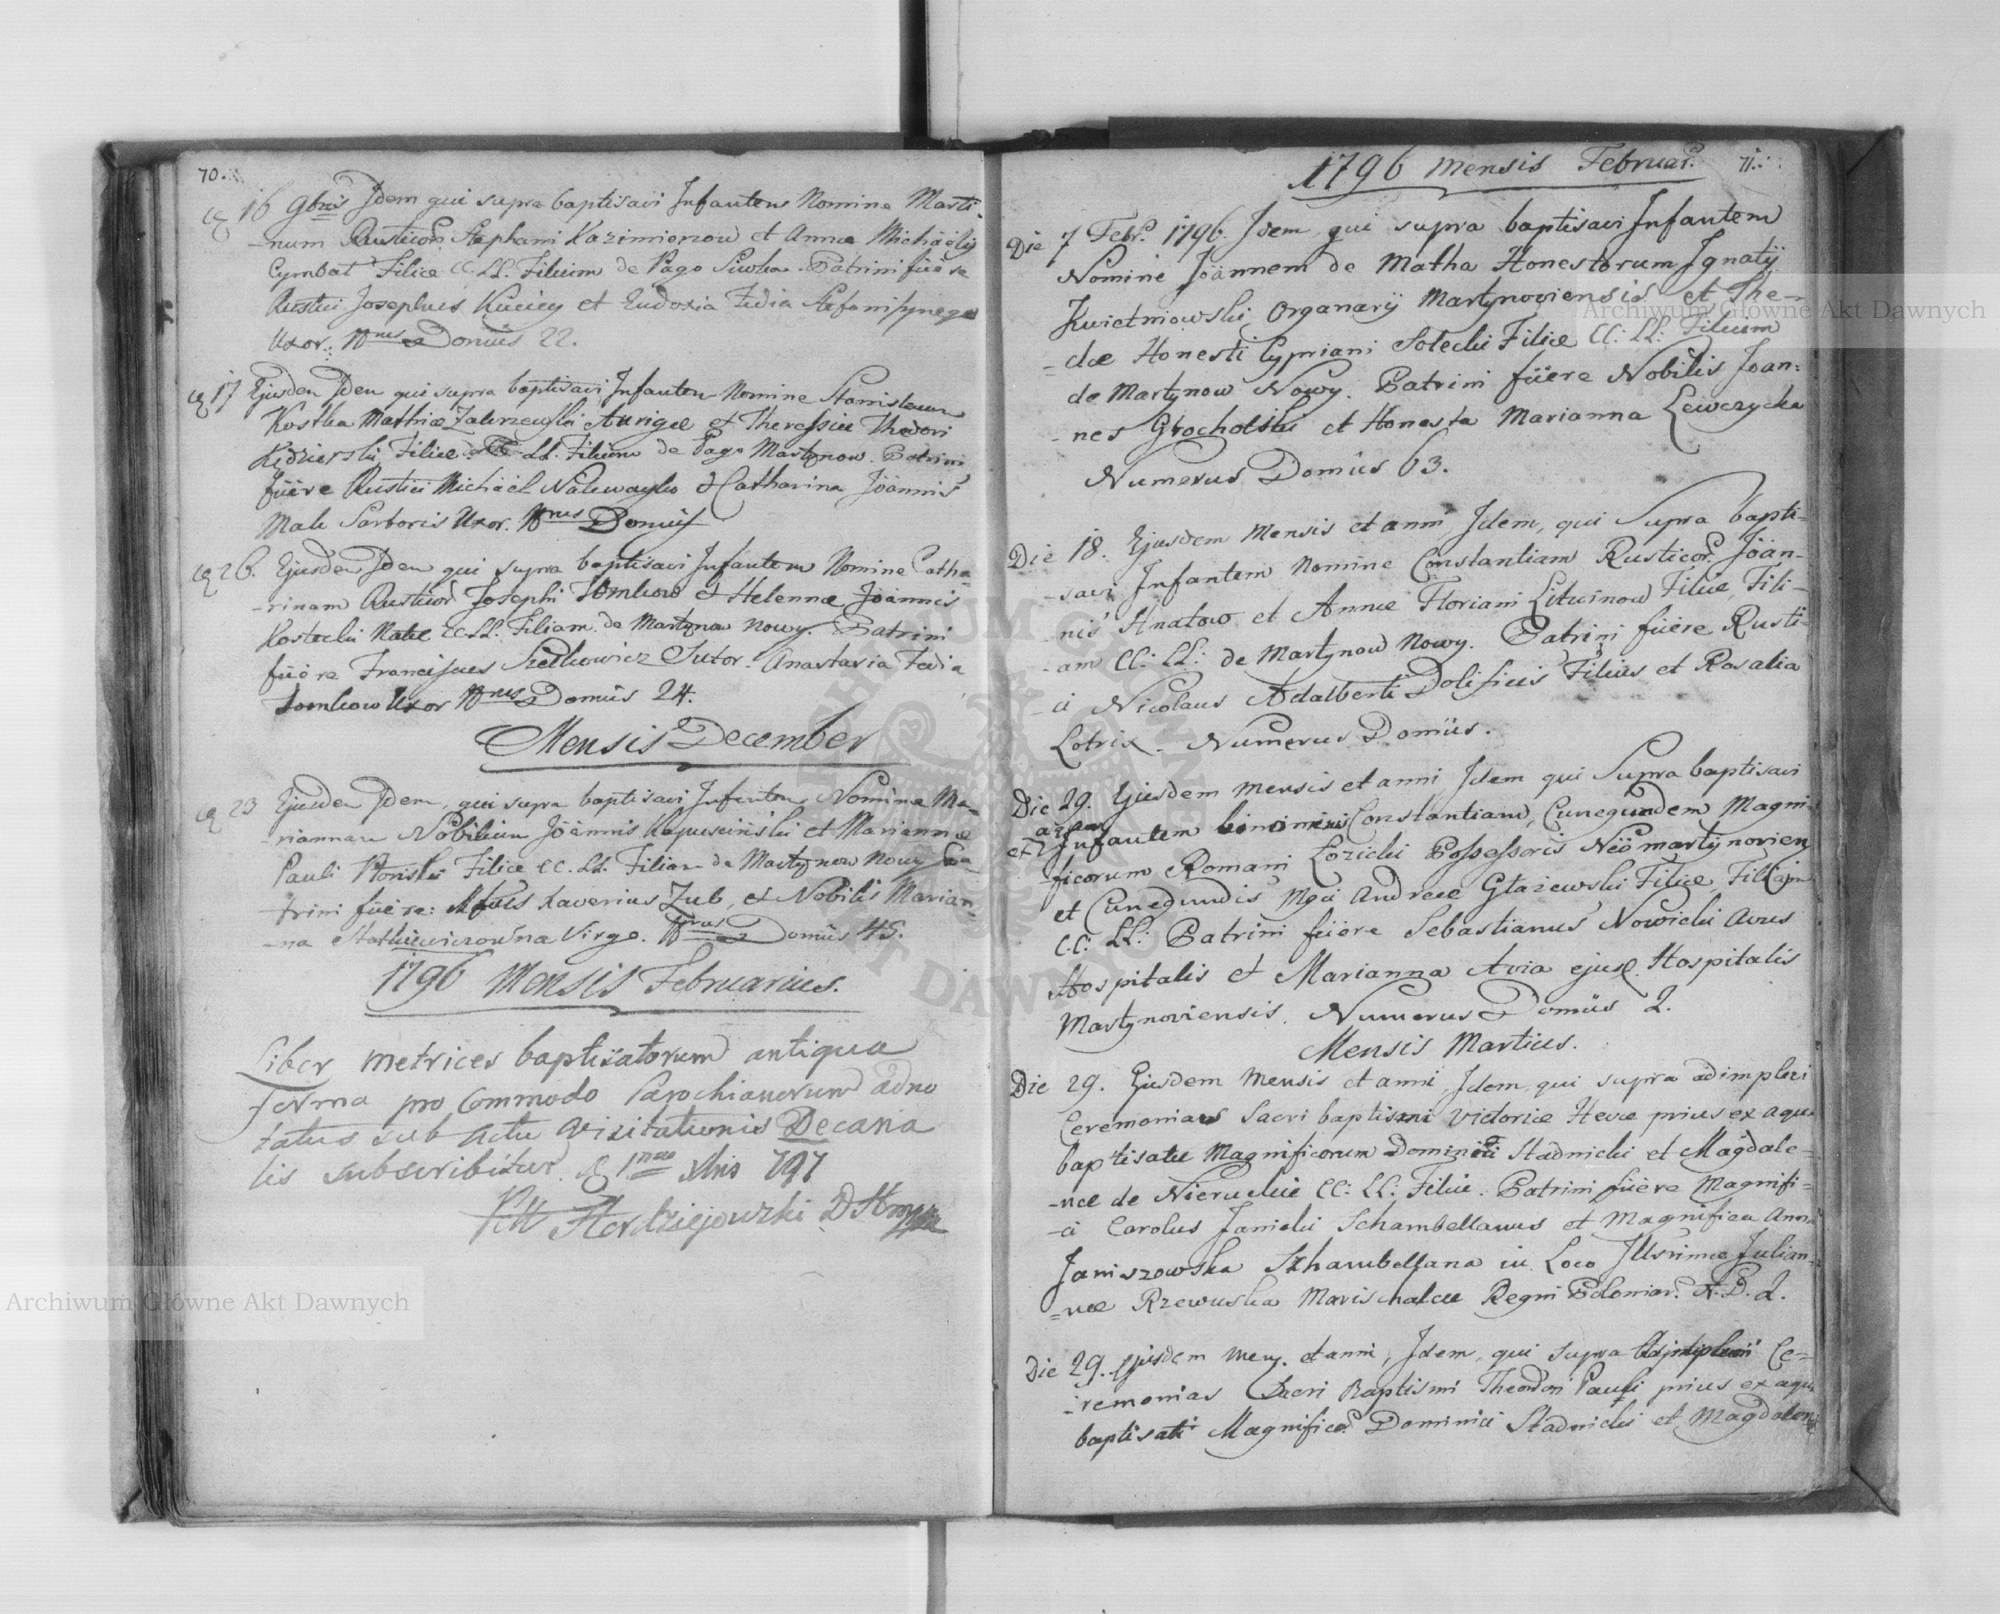 70.
16 9bris Idem qui supra baptisavi Infantem Nomine Marti-
-num Rusticor. Stephani Kazimierzow et Annæ Michäelis
Cymbal Filiæ CC. LL. Filium de Pago Siwka. Patrini fuëre
Rustici Josephus et Eudoxia Fedia
Uxor. Nrus Domûs 22.
17 Ejusdem Idem qui supra baptisavi Infantem Nomine Stanislaum
Kostka Mathiæ Zakrzewski Aurigæ et Theressiæ Theodori
Kędzierski Filiæ LL. Filium de Pago Martynow. Patrini
fuëre Rustici Michäel Nalewayko et Catharina Jöannis
Male Sartoris Uxor. Nrus Domûs
26. Ejusdem Idem qui supra baptisavi Infantem Nomine Catha-
-rinam Rusticor. Josephi Tomkow et Helennæ Jöannis
Kostecki Natæ CC. LL. Filiam de Martynow Nowy. Patrini
fuëre Franciscus Sutor. Anastasia Fedia
Tomkow Uxor Nrus Domûs 24.
Mensis December
23 Ejusdem Idem, qui supra baptisavi Infantem Nomine Ma-
-riannam Nobilium Jöannis Kapuscinski et Mariannæ
Pauli Filiæ CC. LL. Filiam de Martynow Nowy Pa-
-trini fuëre: Xaverius Zub, et Nobilis Marian-
-na Virgo. Nrus Domûs 45.
1796 Mensis Februarius.
Liber metrices baptisatorum antiqua
forma pro commodo Parochianorum adno
tatus sub actu Visitationis Decana
lis subscribitur 1ma Xbris 797
1796 Mensis Februar. 71.
Die 7 Febr. 1796. Idem qui supra baptisavi Infantem
Nomine Jöannem de Matha Honestorum Ignatÿ
Kwietniowski Organarÿ Martynoviensis et The-
=clæ Honesti Cypriani Solecki Filiæ CC: LL: Filium
de Martynow Nowy. Patrini fuëre Nobilis Joan:
-nes Grocholski et Honesta Marianna Lewczycka
Numerus Domûs 63.
Die 18. Ejusdem Mensis et anni, Idem, qui Supra bapti-
-savi Infantem Nomine Constantiam Rusticor. Jöan-
-nis Hnatow et Annæ Floriani Litwinow Filiæ, Fili-
-am CC: LL: de Martynow Nowy. Patrini fuëre Rusti-
-ci Nicolaus Adalberti Dolificis Filius et Rosalia
Lotrix. Numerus Domûs.
Die 29. Ejusdem Mensis et anni Idem qui Supra baptisavi
Infantem binominis Constantiam, Cunegundem Magni-
ficorum Romani Łozicki Possessoris Neömartynovien
et Cunegundis Mgci Andreæ Głażewski Filiæ, Filiam
CC: LL: Patrini fuëre Sebastianus Nowicki Avus
Hospitalis et Marianna Avia ejusd. Hospitalis
Martynoviensis. Numerus Domûs 2.
Mensis Martius.
Die 29. Ejusdem Mensis et anni, Idem, qui supra adimplevi
Ceremonias Sacri baptismi Victoriæ Hevæ prius ex aqua
baptisatæ Magnificorum Dominici Stadnicki et Magdale-
-næ de CC: LL: Filiæ. Patrini fuëre Magnifi-
-ci Carolus Janicki Schambellanus et Magnifica Anna
Janiszowska Szhambellana in Loco Illsrimæ Julian-
-næ Rzewuska Marischalcæ Regni Poloniar. N. D. 2.
Die 29. Ejusdem Mens. et anni, Idem, qui supra Adimplevi Ce-
-remonias Sacri Baptismi Theodori Pauli prius ex aqua
baptisati Magnificor. Dominici Stadnicki et Magdalenæ
Archiwum Główne Akt Dawnych
Archiwum Główne Akt Dawnych